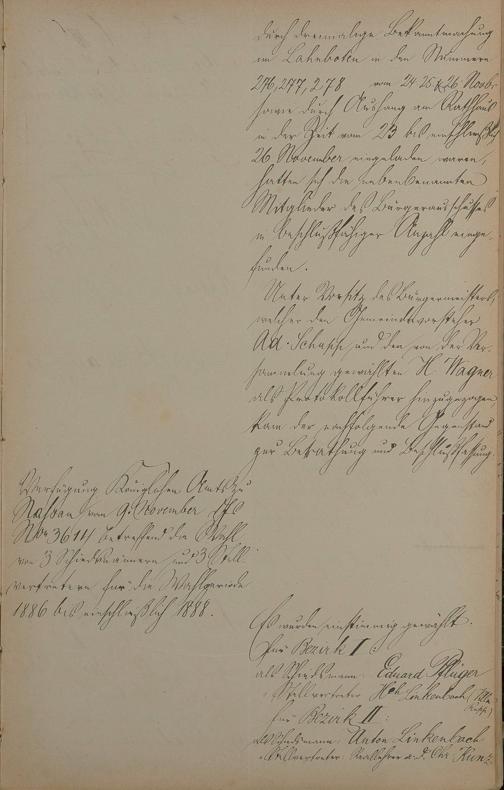 durch dreimalige Bekanntmachung
im Lahnboten in den Nummern
276, 277, 278 vom 24 25 & 26 Novbr
sowie durch Aushang am Rathhaus
in der Zeit vom 23 bis einschließlich
26 November eingeladen waren,
hatten sich die nebenbenannten
Mitglieder des Bürgerausschusses
in beschlußfähiger Anzahl einge
funden.
Unter Vorsitz des Bürgermeisters,
welcher den Gemeindevorsteher
Ad. und den von der Ver-
sammelung gewählten H. Wagner
als Protokollführer hinzugezogen
kam der nachfolgende Gegenstand
zur Berathung und Beschlußfassung.
Verfügung Königlichen Amts zu
Nassau vom 9. November
No 3614 betreffend die Wahl
von 3 Schiedsmännern und 3 Stell
vertretern für die Wahlperiode
1886 bis einschließlich 1888.
Es wurden einstimmig gewählt.
für Bezirk I:
als Schiedsmann: Eduard Pflüger
Stellvertreter Linkenbach
für Bezirk II:
als Schiedsmann: Anton Linkenbach
Stellvertreter: Reallehrer a. D. Chr. Kunz